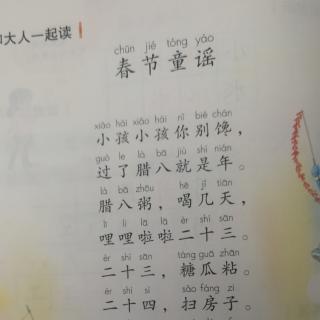 和大人一起读
chūn jié tóng yáo
春节童谣
xiǎo hái xiǎo hái nǐ bié chán
小孩小孩你别馋，
guò le là bā jiù shì nián
过了腊八就是年。
là bā zhōu hē jǐ tiān
腊八粥，喝几天，
lī li lā lā èr shí sān
哩哩啦啦二十三。
èr shí sān táng guā zhān
二十三，糖瓜粘。
èr shí sì sǎo fáng zi
二十四，扫房子。